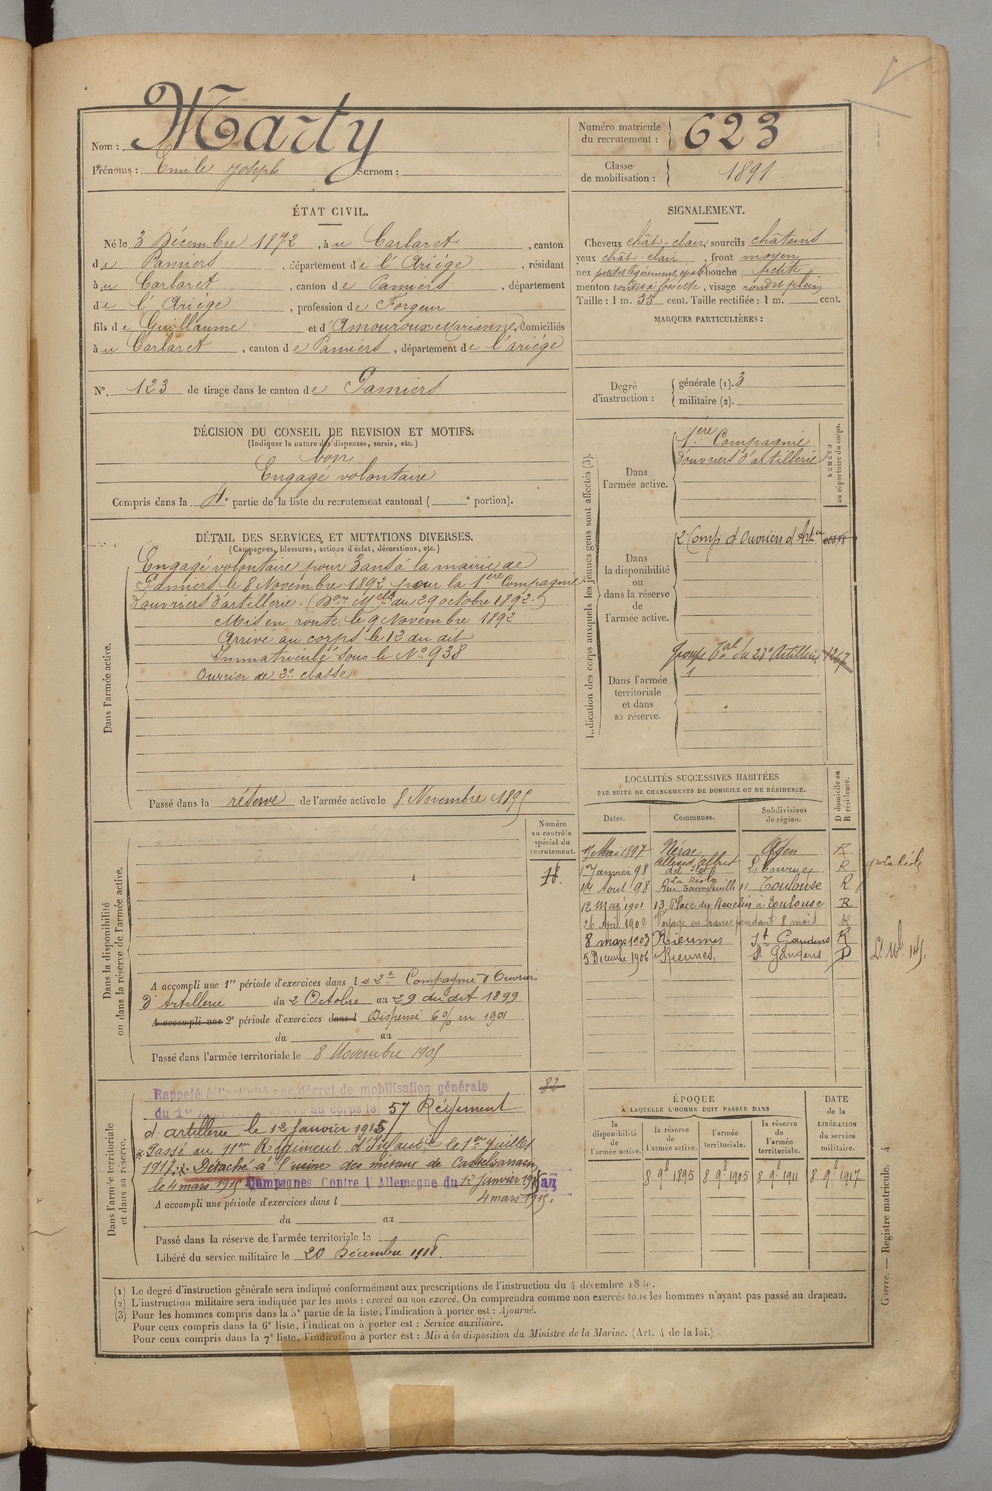 Nom : Marty
Prénoms : Emile Joseph Surnom :
Numéro matricule
du recrutement : 623
Classe
de mobilisation : 1891
ÉTAT CIVIL.
Né le 3 Décembre 1872, à u Carlaret, canton
de Pamiers, département de l'Ariége, résidant
à u Carlaret, canton de Pamiers, département
de l'Ariége, profession de Forgeur
fils de Guillaume et d'Amouroux Marianne, domiciliés
à u Carlaret, canton de Pamiers, département de l'ariége
N°. 123 de tirage dans le canton de Pamiers
SIGNALEMENT.
Cheveux chât-clair, sourcils châtains
yeux chât-clair, front moyen
nez petit légèrement épaté bouche petite
menton rond à fossette, visage rond et plein
Taille : 1 m. 55 cent. Taille rectifiée : 1 m. cent.
MARQUES PARTICULIÈRES :
Degré
d'instruction :
générale (1). 3
militaire (2).
DÉCISION DU CONSEIL DE REVISION ET MOTIFS.
(Indiquer la nature des dispenses, sursis, etc.)
bon
Engagé volontaire
Compris dans la 4e partie de la liste du recrutement cantonal ( e portion).
DÉTAIL DES SERVICES, ET MUTATIONS DIVERSES.
(Campagnes, blessures, actions d'éclat, décorations, etc.)
Dans l'armée active.
Engagé volontaire pour 3 ans à la mairie de
Pamiers le 8 Novembre 1892 pour la 1ère Compagnie
d'ouvriers d'artillerie. (Don Mlle du 29 octobre 1892.)
Mis en route le 9 Novembre 1892
Arrivé au corps le 12 du dit
Immatriculé sous le N° 938
Ouvrier de 3e classe
Passé dans la réserve de l'armée active le 8 Novembre 1895
Indication des corps auxquels les jeunes gens sont affectés (3).
NUMÉRO
au répertoire du corps.
Dans
l'armée active.
1ère Compagnie
d'ouvriers d'artillerie
Dans
la disponibilité
ou
dans la réserve
de
l'armée active.
2e Comp d'Ouvriers d'Artie
Dans l'armée
territoriale
et dans
sa réserve.
Groupe Tal du 23e Artillerie 1217
LOCALITÉS SUCCESSIVES HABITÉES
PAR SUITE DE CHANGEMENTS DE DOMICILE OU DE RÉSIDENCE.
Dates. Communes. Subdivisions
de région. D domicile ou
R résidence.
1er Mai 1897 Nérac Agen R
1er Janvier 98 Libourne R
1er Aout 98 Toulouse R
12 Mai 1901 13 Place du Ravelin à Toulouse R
26 Avril 1902 Voyage en France pendant 8 mois R
8 mars 1903 Rieumes St Gaudens R
5 Décembre 1906 Rieumes, St Gaudens D
Dans la disponibilité
ou dans la réserve de l'armée active.
Numéro
au contrôle
spécial du
recrutement.
A accompli une 1re période d'exercices dans la 2e Compagnie d'Ouvriers
d'Artillerie du 2 Octobre au 29 du dit 1899
A accompli une 2e période d'exercices dans l Dispensé 6% en 1901
du au
Passé dans l'armée territoriale le 8 Novembre 1905
Dans l'armée territoriale
et dans sa réserve.
82
Rappelé à l'activité par décret de mobilisation générale
du 1er Août. Arrivé au corps le 57 Régiment
d'artillerie le 12 Janvier 1915
Passé au 11e Régiment d'Infanterie le 1er Juillet
1917. Détaché à l'usine des métaux de Castelsarrasin
le 4 mars 1915 Campagnes Contre l'Allemagne du 12 Janvier 1915 au
A accompli une période d'exercices dans l 4 mars 1915.
du au
Passé dans la réserve de l'armée territoriale le
Libéré du service militaire le 20 Décembre 1918
ÉPOQUE
À LAQUELLE L'HOMME DOIT PASSER DANS
DATE
de la
LIBÉRATION
du service
militaire.
la
disponibilité
de
l'armée active.
la réserve
de
l'armée active.
l'armée
territoriale.
la réserve
de
l'armée
territoriale.
8 9bre 1895 8 9bre 1905 8 9bre 1911 8 9bre 1917
(1) Le degré d'instruction générale sera indiqué conformément aux prescriptions de l'instruction du 4 décembre
(2) L'instruction militaire sera indiquée par les mots : exercé ou non exercé. On comprendra comme non exercés tous les hommes n'ayant pas passé au drapeau.
(3) Pour les hommes compris dans la 5e partie de la liste, l'indication à porter est : Ajourné.
Pour ceux compris dans la 6e liste, l'indication à porter est : Service auxiliaire.
Pour ceux compris dans la 7e liste, l'indication à porter est : Mis à la disposition du Ministre de la Marine. (Art. 4 de la loi.)
Guerre. — Registre matricule. 4